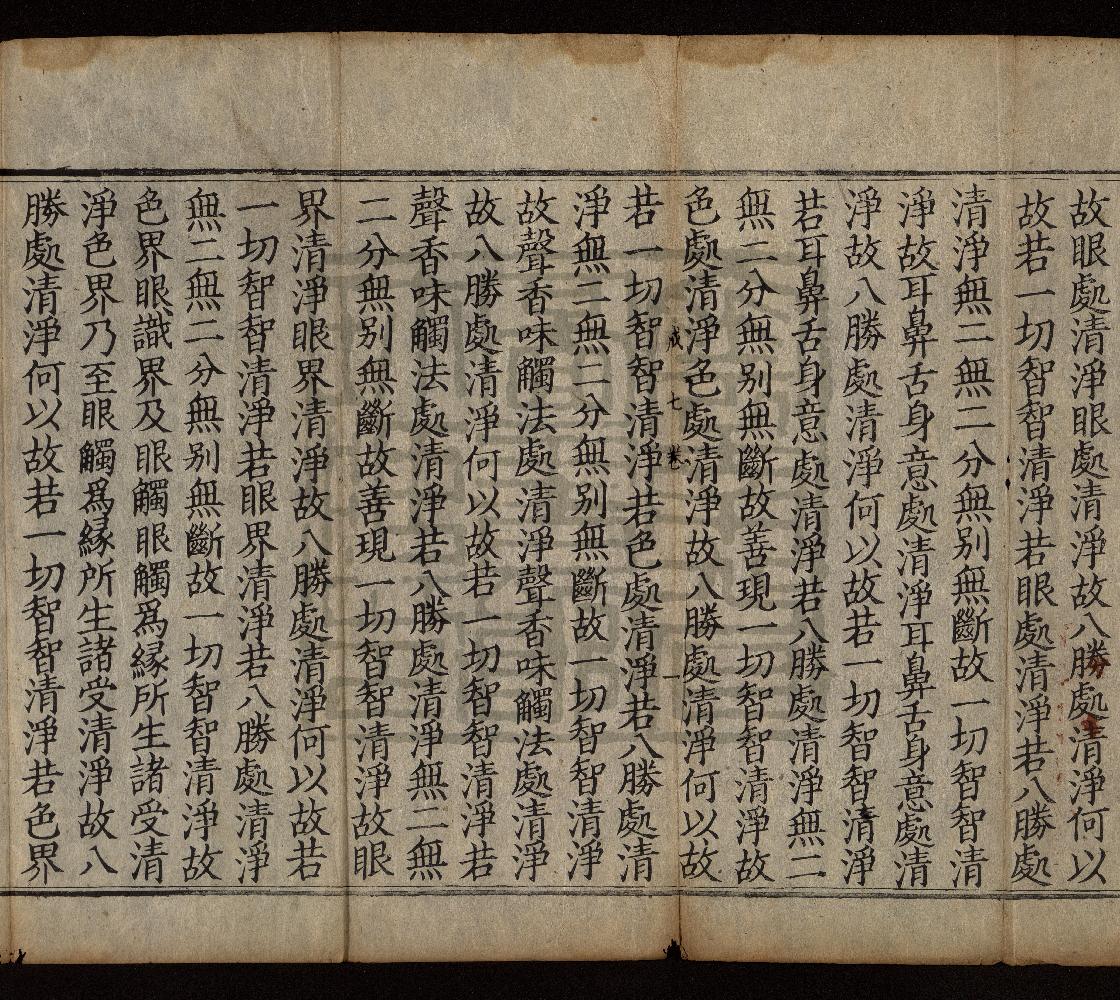 故眼處清淨眼處清淨故八勝處清淨何以
故若一切智智清淨若眼處清淨若八勝處
清淨無二無二分無別無斷故一切智智清
淨故耳鼻舌身意處清淨耳鼻舌身意處清
淨故八勝處清淨何以故若一切智智清淨
若耳鼻舌身意處清淨若八勝處清淨無二
無二分無別無斷故善現一切智智清淨故
色處清淨色處清淨故八勝處清淨何以故
七卷 一
若一切智智清淨若色處清淨若八勝處清
淨無二無二分無別無斷故一切智智清淨
故聲香味觸法處清淨聲香味觸法處清淨
故八勝處清淨何以故若一切智智清淨若
聲香味觸法處清淨若八勝處清淨無二無
二分無別無斷故善現一切智智清淨故眼
界清淨眼界清淨故八勝處清淨何以故若
一切智智清淨若眼界清淨若八勝處清淨
無二無二分無別無斷故一切智智清淨故
色界眼識界及眼觸眼觸爲緣所生諸受清
淨色界乃至眼觸爲緣所生諸受清淨故八
勝處清淨何以故若一切智智清淨若色界